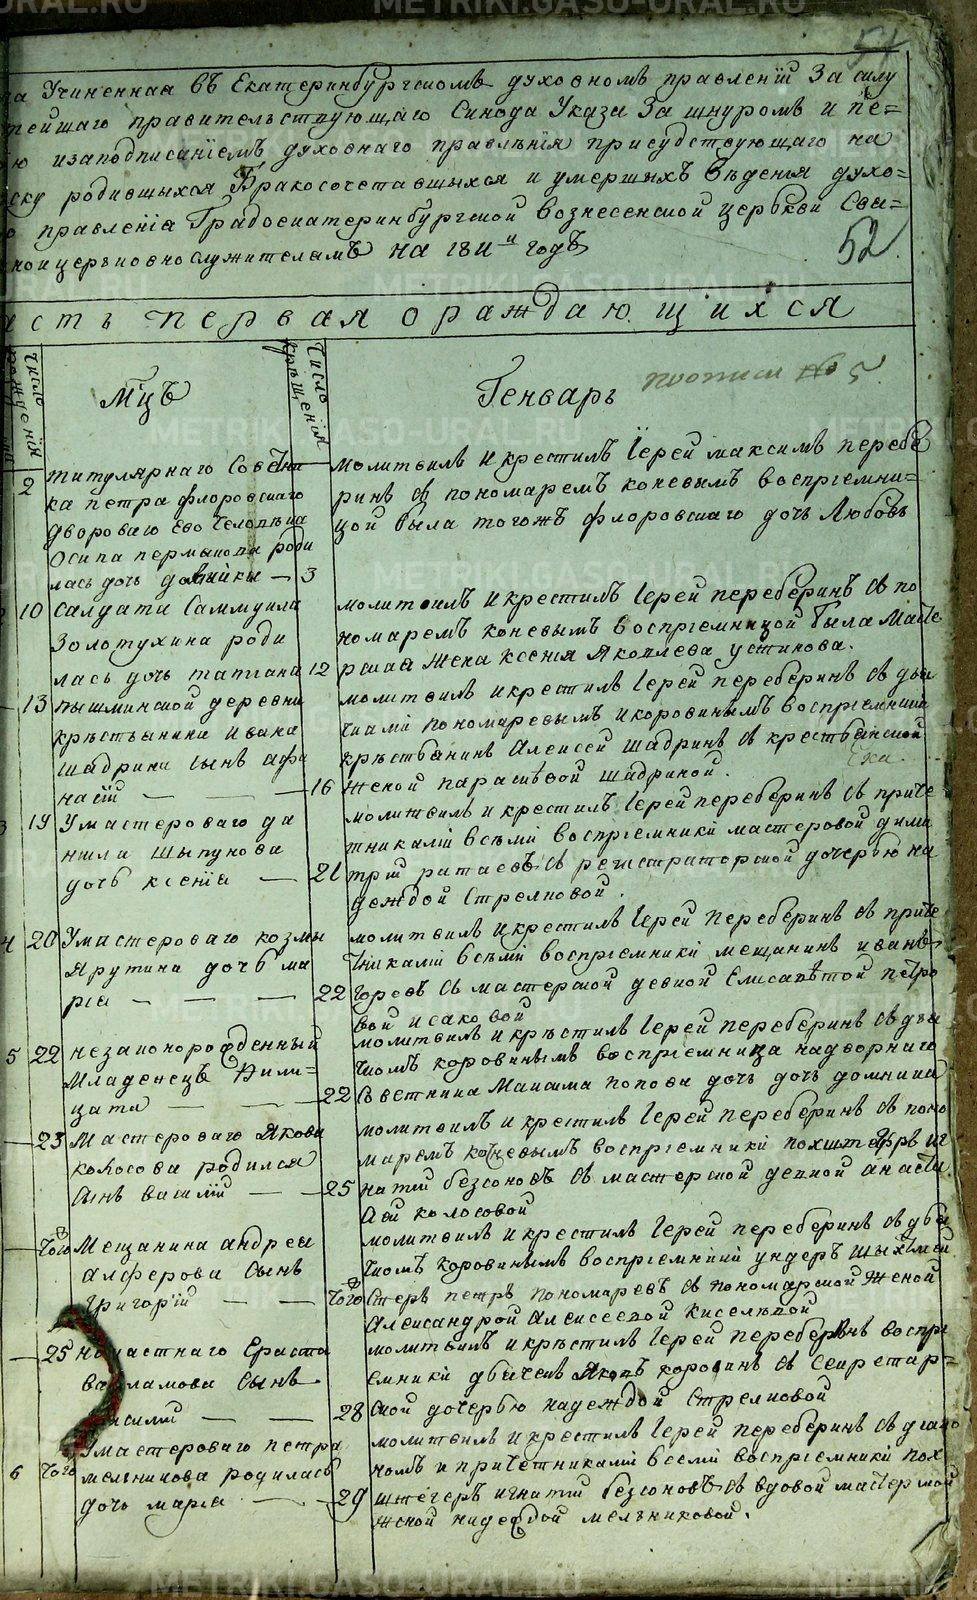 Учиненная въ Екатеринбургскомъ духовномъ правленїи За силу
правительствующаго Синода Указа За шнуромъ и пе=
изаподписанїемъ духовнаго правленїя присудствующаго на
родившыхся Бракосочетавшыхся и умершыхъ Въденїя духо=
правленїя Градоекатеринбургской вознесенской церькви Свя=
церьковнослужителямъ на 1811 й годъ
52
сть первая о раждающихся
число рожденїя
Мцъ
число крещенїя
Генварь
титулярнаго Советни
ка петра флоровскаго
двороваго ево человека
Осипа пермякова роди
лась дочь 3
молитвилъ и крестилъ Іерей максимъ перебе
ринъ съ пономаремъ коневымъ воспрїемни=
цой была тогожъ флоровскаго дочь Любовь
10 Салдата Саммуила
Золотухина роди
лась дочь татїана 12
молитвилъ и крестилъ Іерей переберинъ съ по
номаремъ коневымъ воспрїемницой была Масте
рская Жена Ксенїя Яковлева устинова.
13 пышминской деревни
крестьянина Ивана
шадрина сынъ афа
насїй 16
молитвилъ и крестилъ Іерей переберинъ съ дья
чками пономаревымъ и коровинымъ воспрїемники
крестьянинъ Алексей шадринъ съ крестьянской
Женой парасковой шадриной.
19 У мастероваго да
нила Шыпунова
дочь ксенїа 21
молитвилъ и крестилъ Іерей переберинъ съ приче
тниками всеми воспрїемники мастеровой дими
трїй ратаевъ съ регистраторской дочерью на
деждой Стрелковой.
4 20 У мастероваго козмы
Ярутина дочь ма
рїа 22
молитвилъ и крестилъ Іерей переберинъ съ приче
тниками всеми воспрїемники мещанинъ иванъ
съ мастерской девкой Елисаветой петро
вой исаковой
5 22 незаконорожденный
Младенецъ
22
молитвилъ и крестилъ Іерей переберинъ съ дья
чкомъ коровинымъ воспрїемница надворнаго
Советника Максима попова дочь дочь домника
23 Мастероваго Якова
колосова родился
сынъ василїй 25
молитвилъ и крестилъ Іерей переберинъ съ поно
маремъ коневымъ воспрїемники похштегеръ иг
натїй безсоновъ съ мастерской девкой анаста
сїей колосовой
того Мещанина андрея
алферова сынъ
григорїй того
молитвилъ и крестилъ Іерей переберинъ съ дья
чкомъ коровинымъ воспрїемники ундеръ шыхтмей
стеръ петръ пономаревъ съ пономарской Женой
Александрой Алексеевой киселевой
25 Ераста
варламова сынъ
28
молитвилъ и крестилъ Іерей переберинъ воспрї
емники дьячекъ Яковъ коровинъ съ Секретар=
ской дочерью надеждой Стрелковой
6 того У мастероваго петра
мельникова родилась
дочь марїа 29
молитвилъ и крестилъ Іерей переберинъ съ дїако
номъ и причетниками всеми воспрїемники пох
штегеръ игнатїй безсоновъ съ вдовой мастерской
Женой надеждой мельниковой.
METRIKI.GASO-URAL.RU